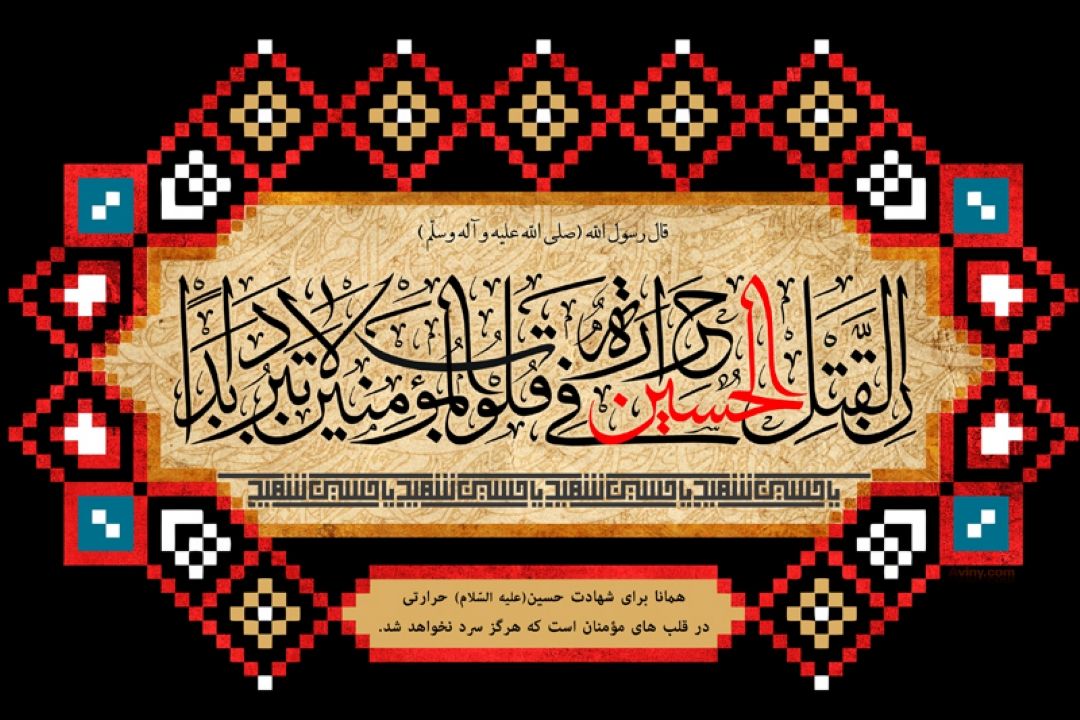 قال رسول الله (صلی الله علیه و آله وسلّم)
اِنَّ لِقَتلِ الحُسَین حَرارَةٌ فی قُلُوبِ المُؤمِنینَ لا تَبرُدَ اَبَدًا
یا حسین شهید یا حسین شهید یا حسین شهید یا حسین شهید
همانا برای شهادت حسین(علیه السّلام) حرارتی
در قلب های مؤمنان است که هرگز سرد نخواهد شد.
viny.com